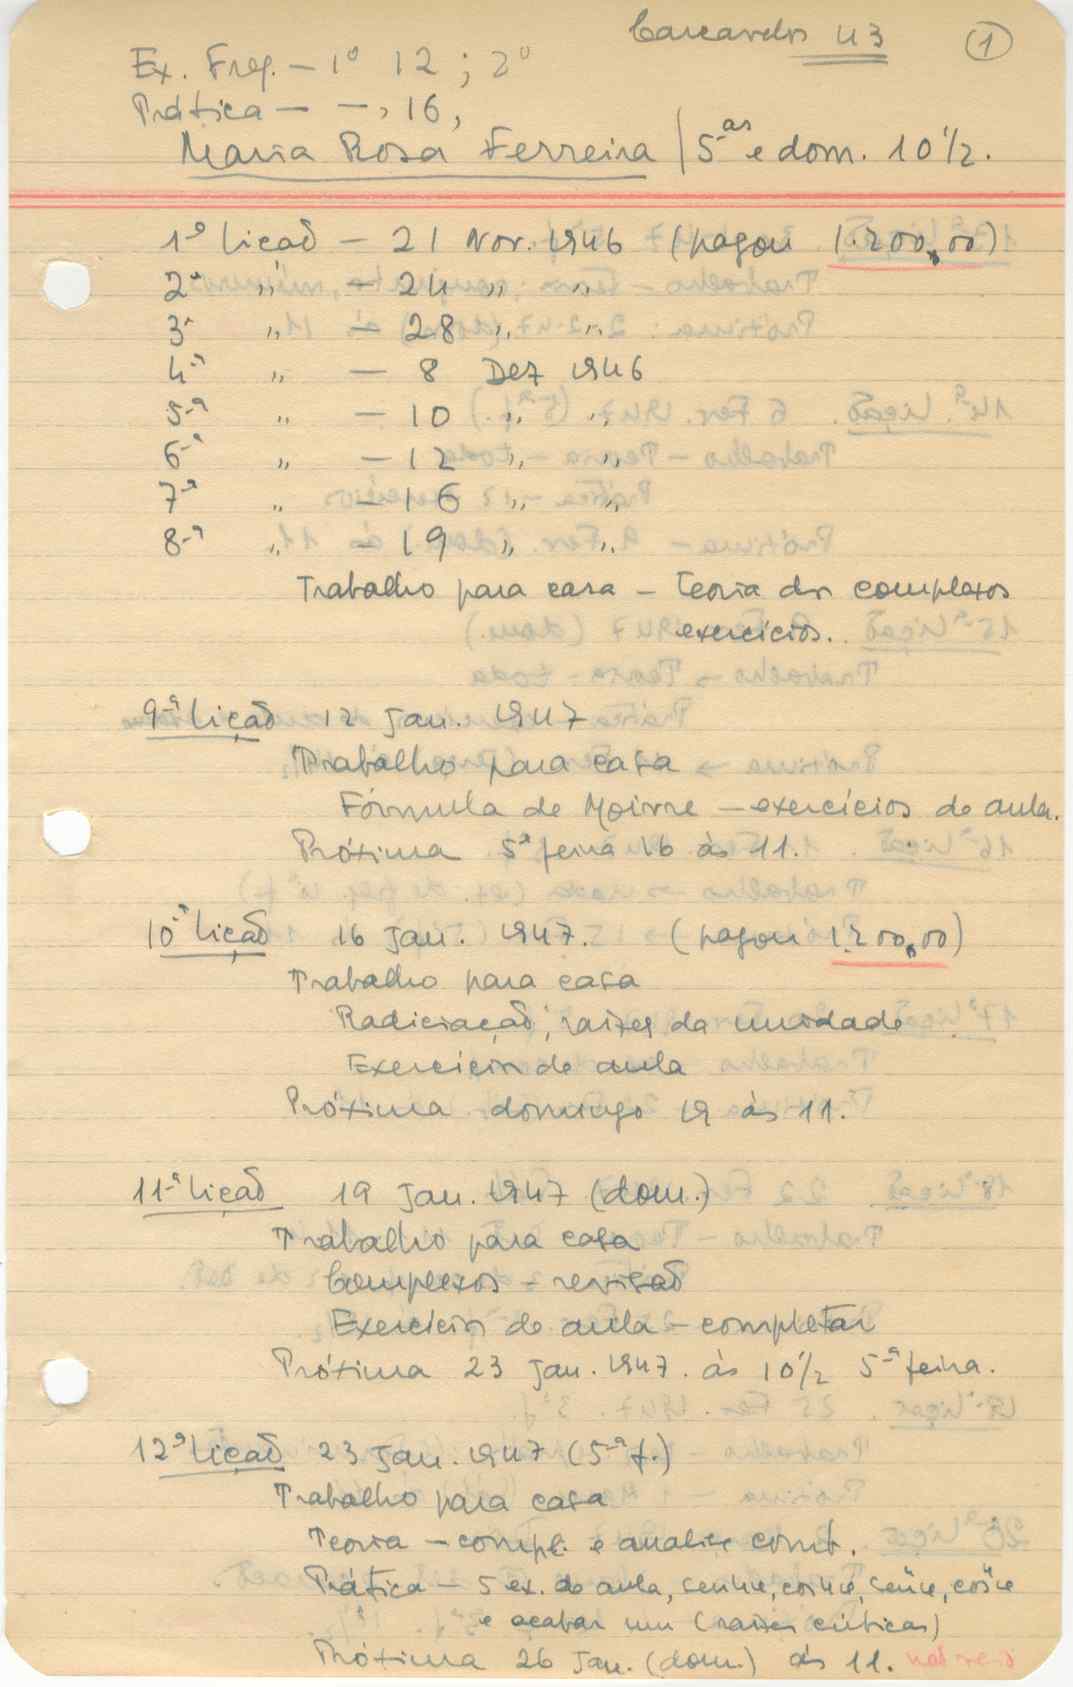 Carcavelos 43 1
Ex. Freq. – 1º 12 ; 2º
Prática – –, 16,
Maria Rosa Ferreira / 5-as e dom. 10 1/2.
1ª lição – 21 Nov. 1946 (pagou 1.200,00)
2ª " – 24 " "
3ª " – 28 " "
4ª " – 8 Dez 1946
5-ª " – 10 " "
6-ª " – 12 " "
7-ª " – 16 " "
8-ª " – 19 " "
Trabalho para casa – Teoria dos complexos
exercícios.
9-ª lição 12 Jan. 1947
Trabalho para casa
Fórmula de Moivre – exercícios de aula.
Próxima 5ª feira 16 às 11.
10-ª lição 16 Jan. 1947. (pagou 1.200,00)
Trabalho para casa
Radiciação; raízes da unidade
Exercícios de aula
Próxima domingo 19 às 11.
11-ª lição 19 Jan. 1947 (dom.)
Trabalho para casa
Complexos – revisão
Exercícios de aula – completar
Próxima 23 Jan. 1947. às 10 1/2 5-ª feira.
12ª lição 23 Jan. 1947 (5-ª f.)
Trabalho para casa
Teoria – compl. e analise comb.
Prática – 5 ex. de aula,
e acabar um (raízes cúbicas)
Próxima 26 Jan. (dom.) às 11. não veio